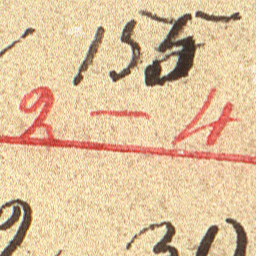 155
2 – 4
30